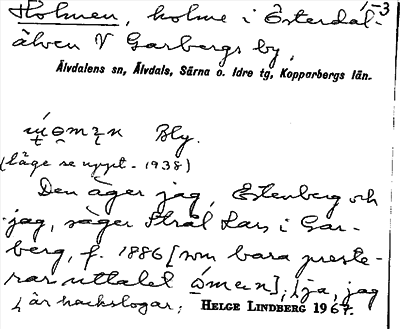 Holmen, holme i Österdal- 1-3
älven V Garbergs by,
Älvdalens sn, Älvdals, Särna o. Idre tg, Kopparbergs län.
Bly.
(läge se uppt. 1938)
Den äger jag, Stenberg och
jag, säger Strål Lars i Gar-
berg, f. 1886 [som bara preste-
rar uttalet]; [ja, jag
är hackslogar; HELGE LINDBERG 1967.